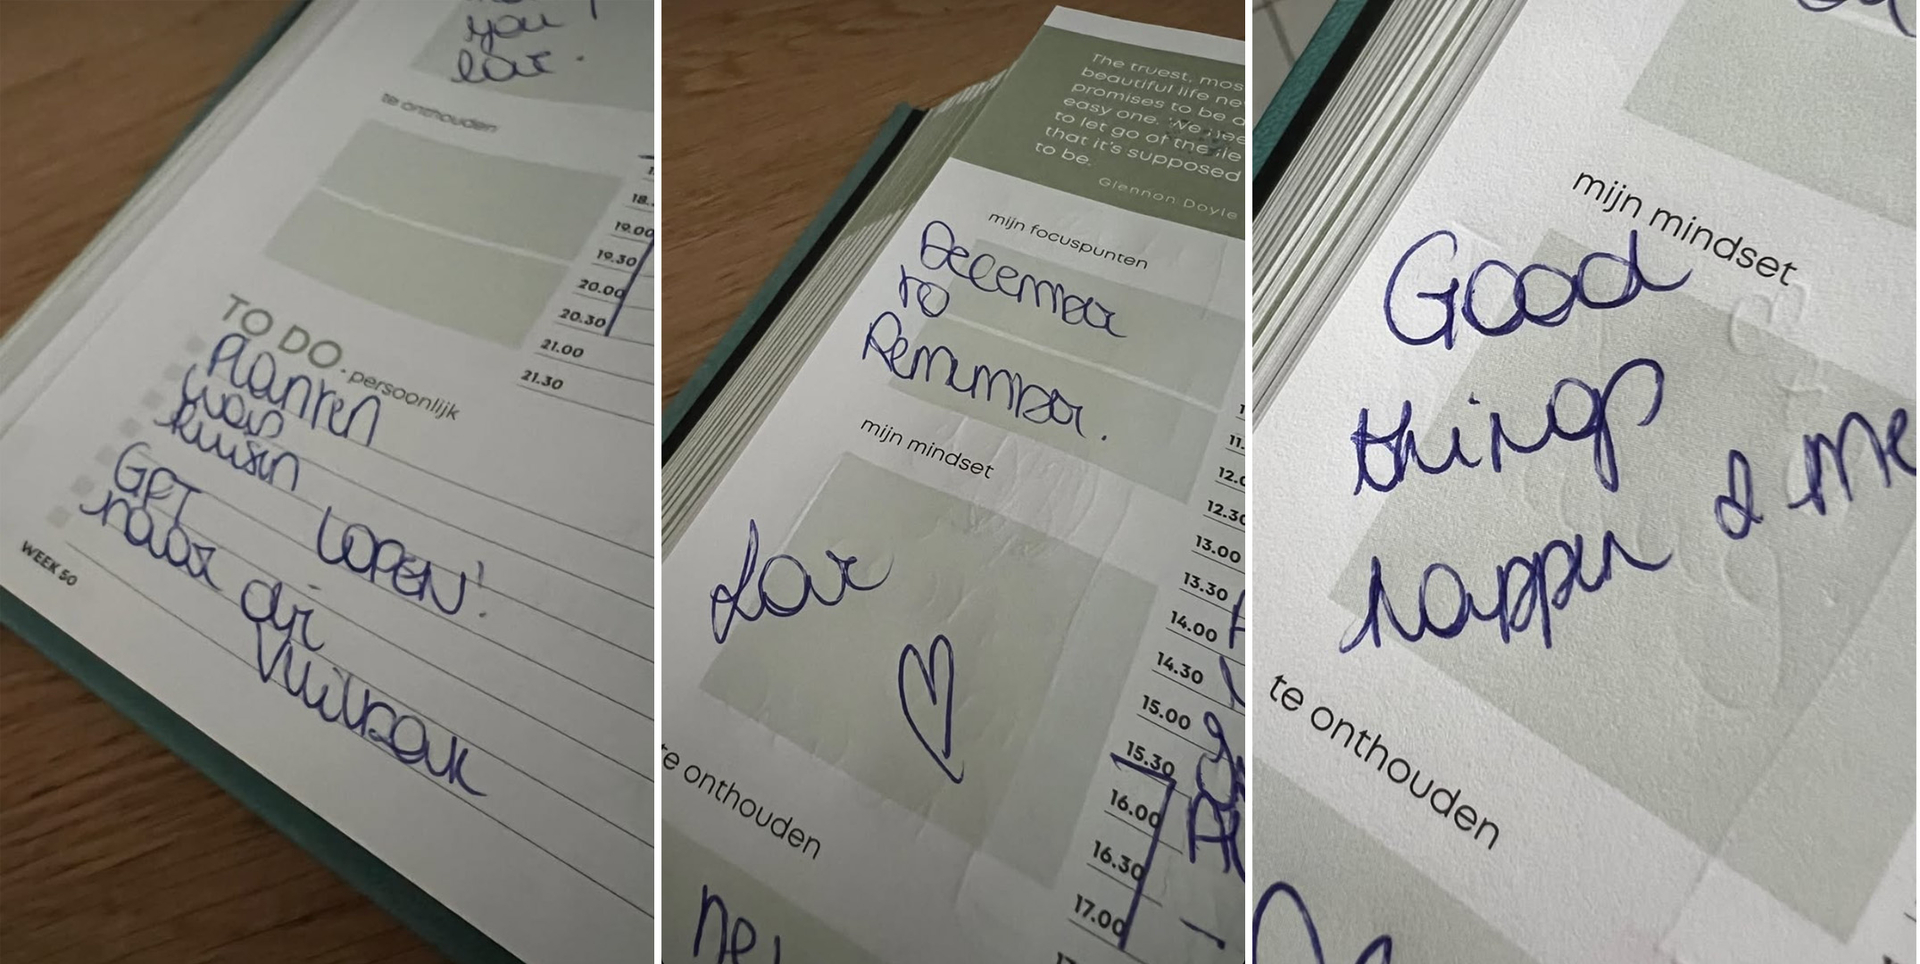 you
love.
te onthouden
18.
19.00
19.30
20.00
20.30
21.00
21.30
TO DO. persoonlijk
Planten
LOPEN!
naar
WEEK 50
The truest, mos
beautiful life ne
promises to be a
easy one. We nee
to let go of the lie
that it's supposed
to be.
Glennon Doyle
mijn focuspunten
December
to
Remember.
mijn mindset
Love
11.
12.0
12.30
13.00
13.30
14.00
14.30
15.00
15.30
16.00
16.30
17.00
te onthouden
mijn mindset
Good
things
happen & me
te onthouden